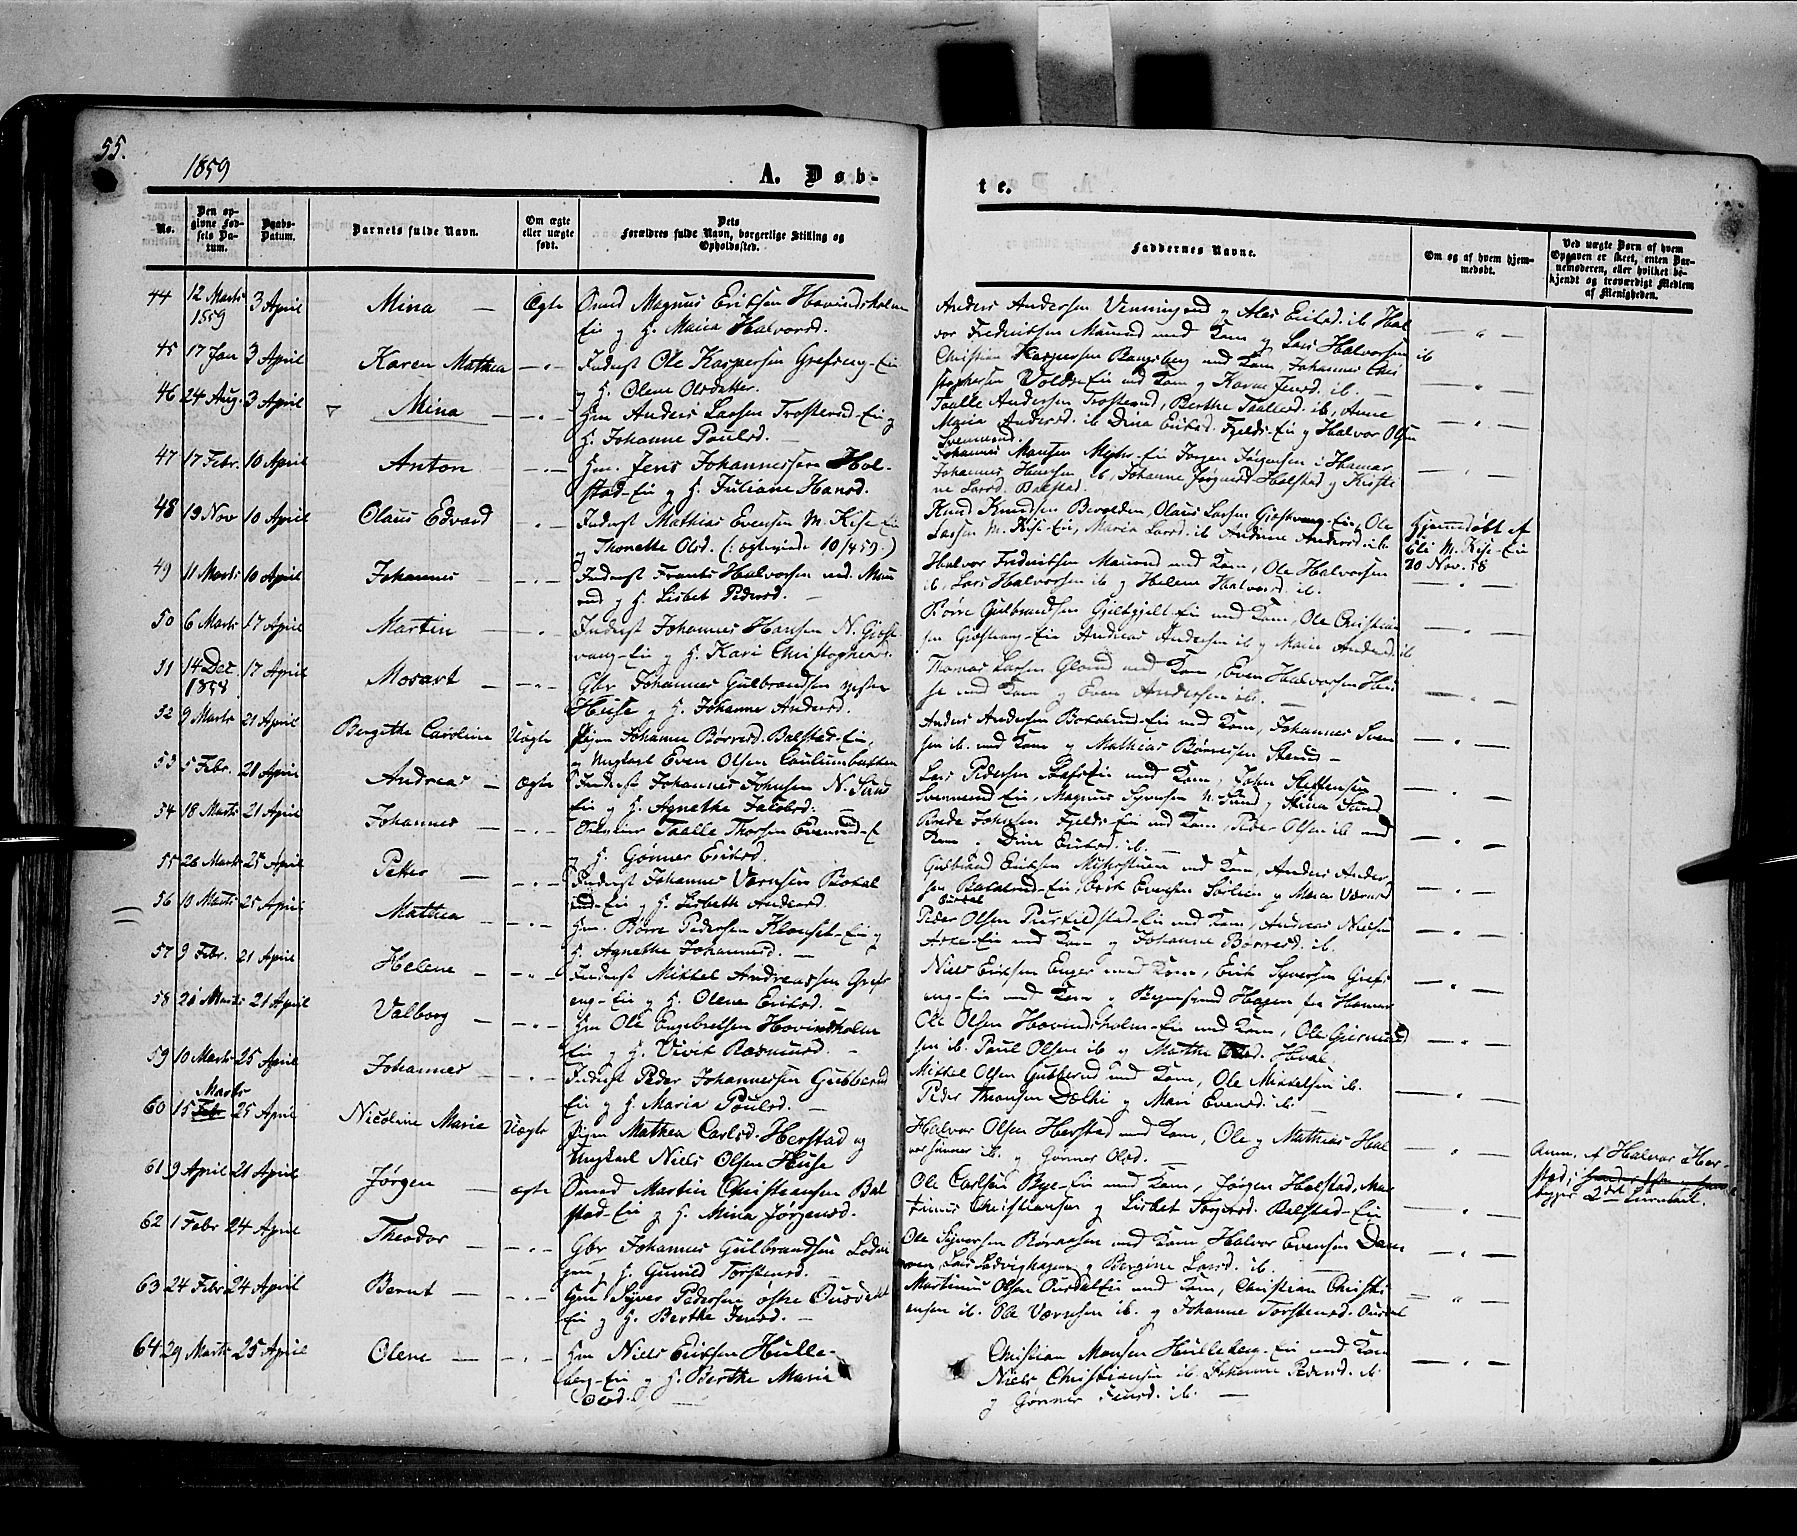 55.
1859
A. Døb-
te.
No.
Den opgivne Fødsels Datum.
Daabs-Datum.
Barnets fulde Navn.
Om ægte eller uægte født.
Dets Forældres fulde Navn, borgerlige Stilling og Opholdssted.
Faddernes Navne.
Om og af hvem hjemmedøbt.
Ved uægte Børn af hvem Opgaven er skeet, enten Barnemoderen, eller hvilket bekjendt og troværdigt Medlem af Menigheden.
44 12 Marts 1859 3 April Mina — Ægte Magnus Eriksen Hovindsholm
Ei og H. Maria Halvorsd.
Anders Andersen og Eriksd. ib. Hal
vor Fredriksen Maurud med Kone og Lars Halvorsen ib
45 17 Jan 3 April Karen Mathea —"— Inderst Ole Kaspersen Grefseng-Ei
og H. Olene Olsdatter.
Christian Kaspersen Bangsberg med Kone Johannes Chri
stophersen Volds-Ei med Kone og Karen Jensd. ib. —
46 24 Aug. 3 April Mina —"— Hm Anders Larsen Trosterud-Ei og
H. Johanne Poulsd. —
Taalle Andersen Trosterud, Berthe Taallesd. ib, Anne
Maria Andersd. ib Dina Eriksd. Fjelds-Ei og Halvor Olsen
Svennerud.
47 17 Febr. 10 April Anton —"— Hm. Jens Johannessen Hol-
stad-Ei og H. Juliane Hansd.
Johannes Monsen Ei Jørgen Jørgensen i Hamar
Johannes Hansen ib, Johanne Jørgensd Holstad og Kirsti
ne Larsd. Balstad.
48 19 Nov 10 April Olaus Edvard —"— Inderst Mathias Evensen M. Kise-Ei
og Thonette Olsd. (: ægteviede 10/4 59.)
Knud Knudsen Olaus Larsen Gjøstvang-Ei, Ole
Larsen M. Kise-Ei, Maria Larsd. ib Andrine Andersd. ib.
Hjemmedøbt af
Eli M. Kise-Ei
20 Nov. 58
49 11 Marts 10 April Johannes —"— Inderst Frants Halvorsen ned. Mau
rud og H. Lisbet Pedersd. —
Halvor Fredriksen Maurud med Kone, Ole Halvorsen
ib. Lars Halvorsen ib og Helene Halvorsd. ib.
50 6 Marts 17 April Martin —"— Inderst Johannes Hansen N. Gjøst-
vang-Ei og H. Kari Christophersd.
Børre Gulbrandsen Ei med Kone, Ole Christian
sen Gjøstvang-Ei Andreas Andersen ib og Maria Andersd. ib
51 14 Dec 1858 17 April Mosart —"— Gbr Johannes Gulbrandsen vestre
Huse og H. Johanne Andersd.
Thomas Larsen med Kone, Even Halvorsen Hu
se med Kone og Even Andersen ib. —
52 9 Marts 21 April Bergithe Caroline Uægte Pigen Johanne Børresd. Balstad-Ei,
og Ungkarl Even Olsen
Anders Andersen Boxalrud-Ei med Kone, Johannes Sven
sen ib. med Kone og Mathias Børresen Stenrud —
53 5 Febr. 21 April Andreas — Ægte Inderst Johannes Johnsen N. Sund
Ei og H. Agnethe Jacobsd. —
Lars Pedersen Ei med Kone, John Steffensen
Svennerud Ei, Magnus Syversen N. Sund og Stina Sund
54 18 Marts 21 April Johannes —"— Taalle Thorsen Evensrud-E
og H. Gønner Eriksd.
Brede Johnsen Fjelds-Ei med Kone, Peder Olsen ib med
Kone og Dina Eriksd. ib. —
55 26 Marts 25 April Petter —"— Inderst Johannes Værnsen Boxal
rud-Ei og H. Lisbeth Andersd.
Gulbrand Eriksen med Kone, Anders Ander
sen Boxalrud-Ei, Erik Evensen og Maren Værnsd
56 10 Marts 25 April Mathea —"— Hm. Børre Pedersen Ei og
H. Agnethe Johannesd. —
Peder Olsen Ei med Kone, Andreas Nielsen
Ei med Kone og Johanne Børresd. ib.
57 9 Febr. 21 April Helene —"— Inderst Mikkel Andreassen Grefs
eng-Ei og H. Olene Eriksd. —
Niels Eriksen Enger med Kone, Erik Syversen Grefs
eng-Ei med Kone og Hagen fra Hamar
58 21 Marts 21 April Valborg —"— Hm Ole Engebretsen Hovindsholm
Ei og H. Vivit Rasmusd. —
Ole Olsen Hovindsholm-Ei med Kone, Ole
sen ib. Paul Olsen ib og Marthe Olsd. Hval.
59 10 Marts 25 April Johannes —"— Inderst Peder Johannessen Gubberud
Ei og H. Maria Poulsd. —
Mikkel Olsen Gubberud med Kone, Ole Mikkelsen ib.
Peder Dælhi og Mari Evensd. ib. —
60 15 Marts 25 April Nicoline Marie Uægte Pigen Mathea Carlsd. Herstad og
Ungkarl Niels Olsen Huse
Halvor Olsen Herstad med Kone, Ole og Mathias Hal
vorsønner ib. og Gønner Olsd. —
Anm. af Halvor Her-
stad,
begges 2det Leiermaal.
61 9 April 21 April Jørgen — Ægte Martin Christiansen Bal
stad-Ei og H. Mina Jørgensd.
Ole Carlsen Bye-Ei med Kone, Jørgen Holstad, Mar
tinus Christiansen og Lisbet Balstad-Ei
62 1 Febr 24 April Theodor —"— Gbr Johannes Gulbrandsen
og H. Gunild Torstensd. —
Ole Syversen med Kone Halvor Evensen Dam
men, Lars og Bergine Larsd. ib. —
63 24 Febr 24 April Bernt —"— Hm Syver Pedersen østre Ousdal
Ei og H. Berthe Jensd. —
Martinus Olsen Ousdal Ei med Kone, Christian Christi
ansen ib. Ole Værnsen ib. og Johanne Torstensd. Ousdal
64 29 Marts 25 April Olene —"— Hm Niels Eriksen Hulle-
berg-Ei og H. Berthe Marie
Olsd. —
Christian Monsen Hulleberg-Ei med Kone
Niels Christiansen ib. Johanne Pedersd. ib.
og Gønner Jensd. ib. —